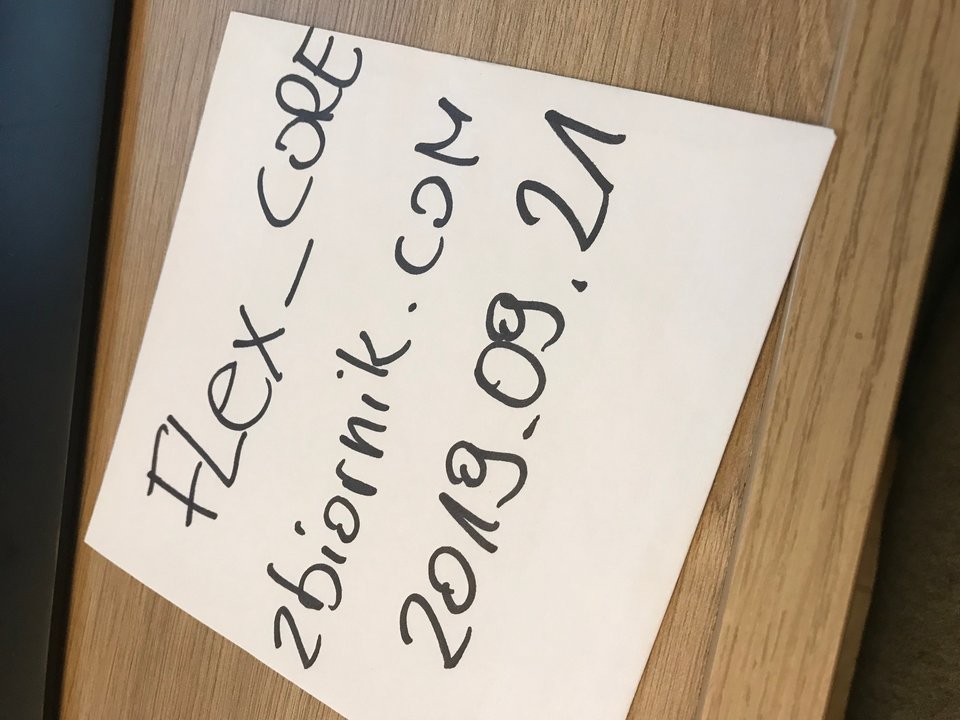 FLex_CORE
zbiornik.com
2019.09.21